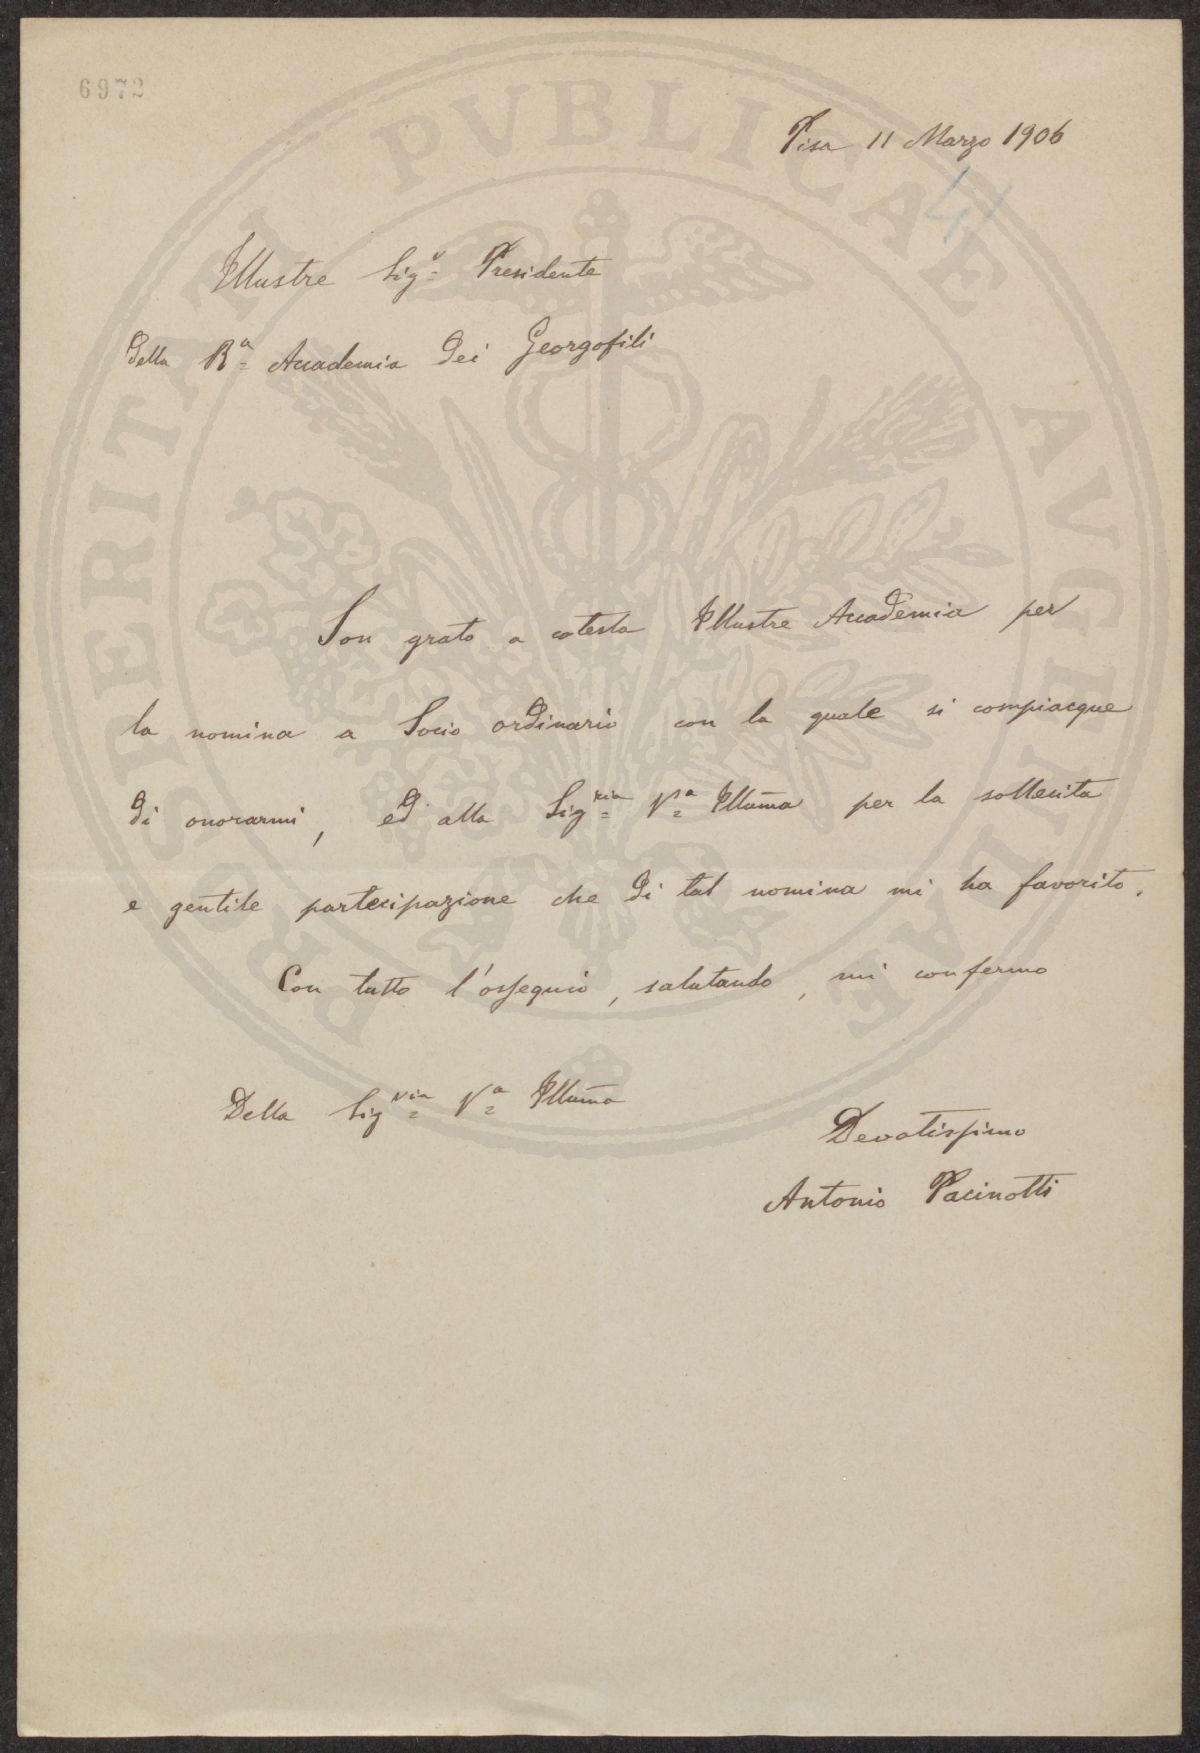 6972
Pisa 11 Marzo 1906
41
Illustre Sigr. Presidente
della Ra. Accademia dei Georgofili
Son grato a cotesta Illustre Accademia per
la nomina a Socio ordinario con la quale si compiacque
di onorarmi, ed alla Sigria. Va. Illuma per la sollecita
e gentile partecipazione che di tal nomina mi ha favorito.
Con tutto l'ossequio, salutando, mi confermo
Della Sigria. Va. Illuma
Devotissimo
Antonio Pacinotti
PROSPERITATI PVBLICAE AVGENDAE